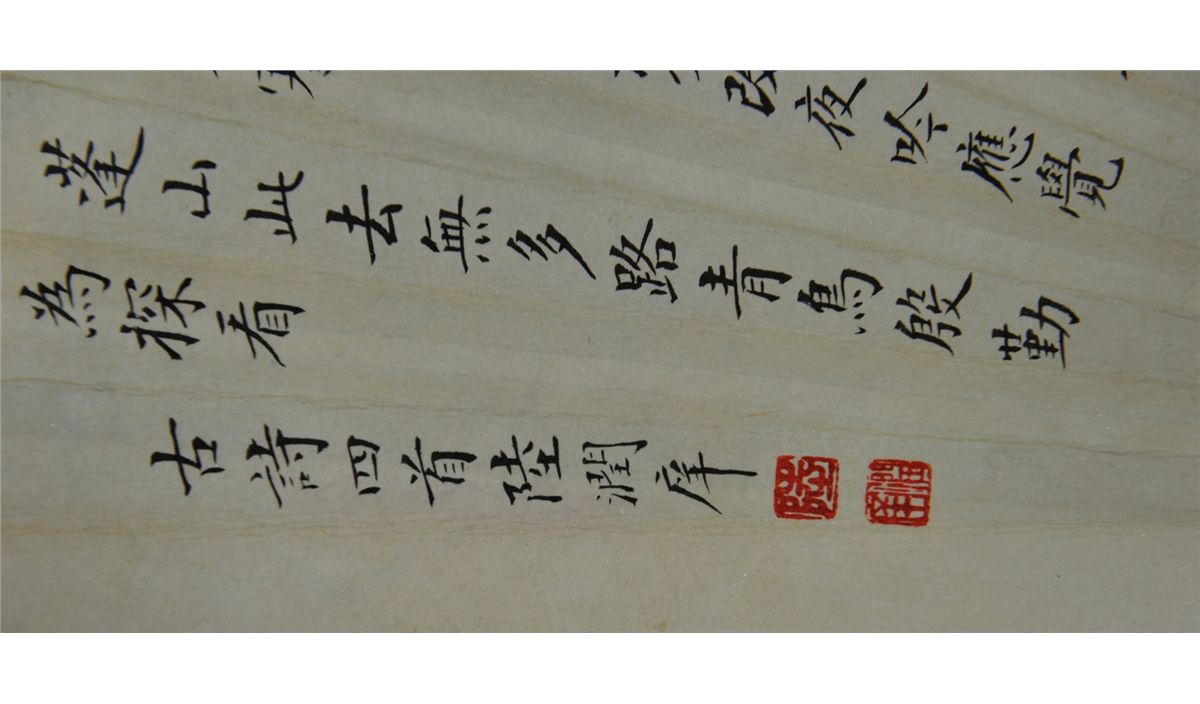 改夜吟應覺
蓬山此去無多路青鳥殷勤
為探看
古詩四首陸潤庠
陸
潤庠